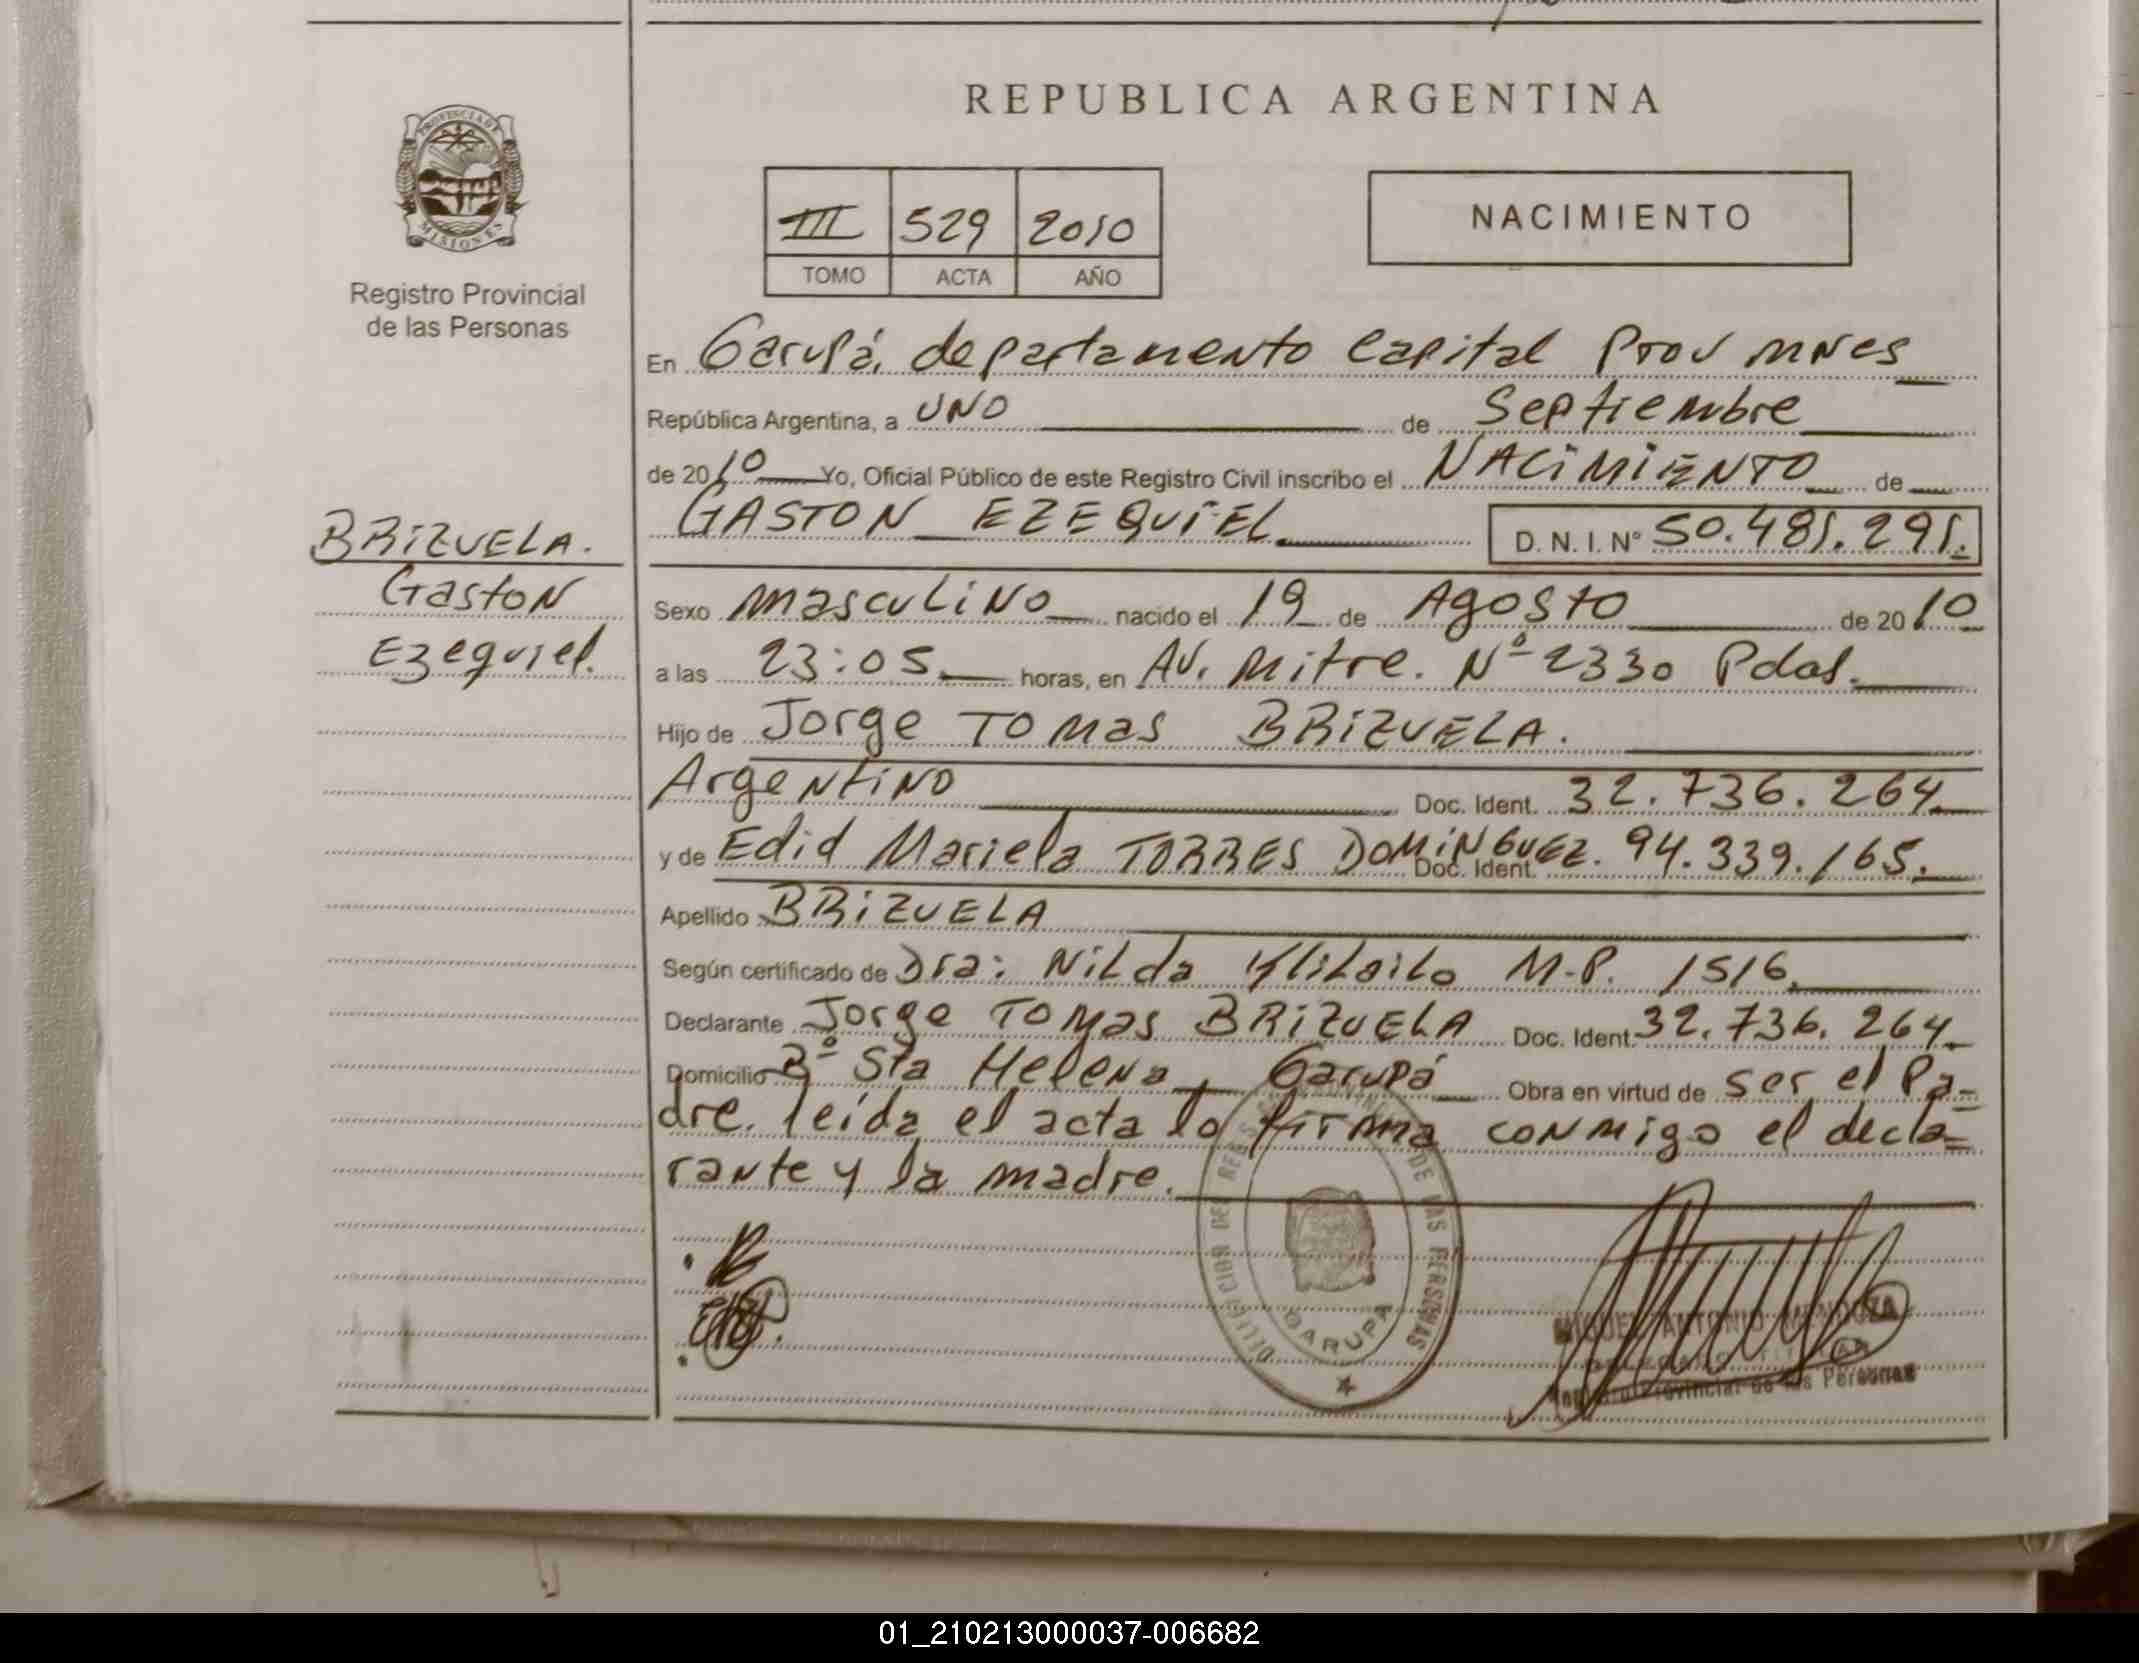 REPUBLICA ARGENTINA
PROVINCIA DE MISIONES
Registro Provincial
de las Personas
III 529 2010
TOMO ACTA AÑO
NACIMIENTO
En Garupá, departamento Capital Prov Mnes
República Argentina, a UNO de Septiembre
de 2010 Yo, Oficial Público de este Registro Civil inscribo el NACIMIENTO de
GASTON EZEQUIEL D. N. I. Nº 50.481.291.
BRIZUELA.
Gaston
Ezequiel.
Sexo masculino nacido el 19 de Agosto de 2010
a las 23:05 horas, en AV. Mitre. Nº 2330 Pdas.
Hijo de Jorge Tomas BRIZUELA.
Argentino Doc. Ident. 32.736.264
y de Edid Mariela TORRES DOMINGUEZ. Doc. Ident. 94.339.165.
Apellido BRIZUELA
Según certificado de Dra: Nilda M.P. 1516.
Declarante Jorge Tomas BRIZUELA Doc. Ident. 32.736.264
Domicilio Bº Sta Helena, Garupá Obra en virtud de ser el Pa-
dre. leída el acta lo firma conmigo el decla-
rante y la madre.
DELEGACION DEL REGISTRO PROVINCIAL DE LAS PERSONAS
GARUPA
MIGUEL ANTONIO MENDOZA
Registro Provincial de las Personas
01_210213000037-006682